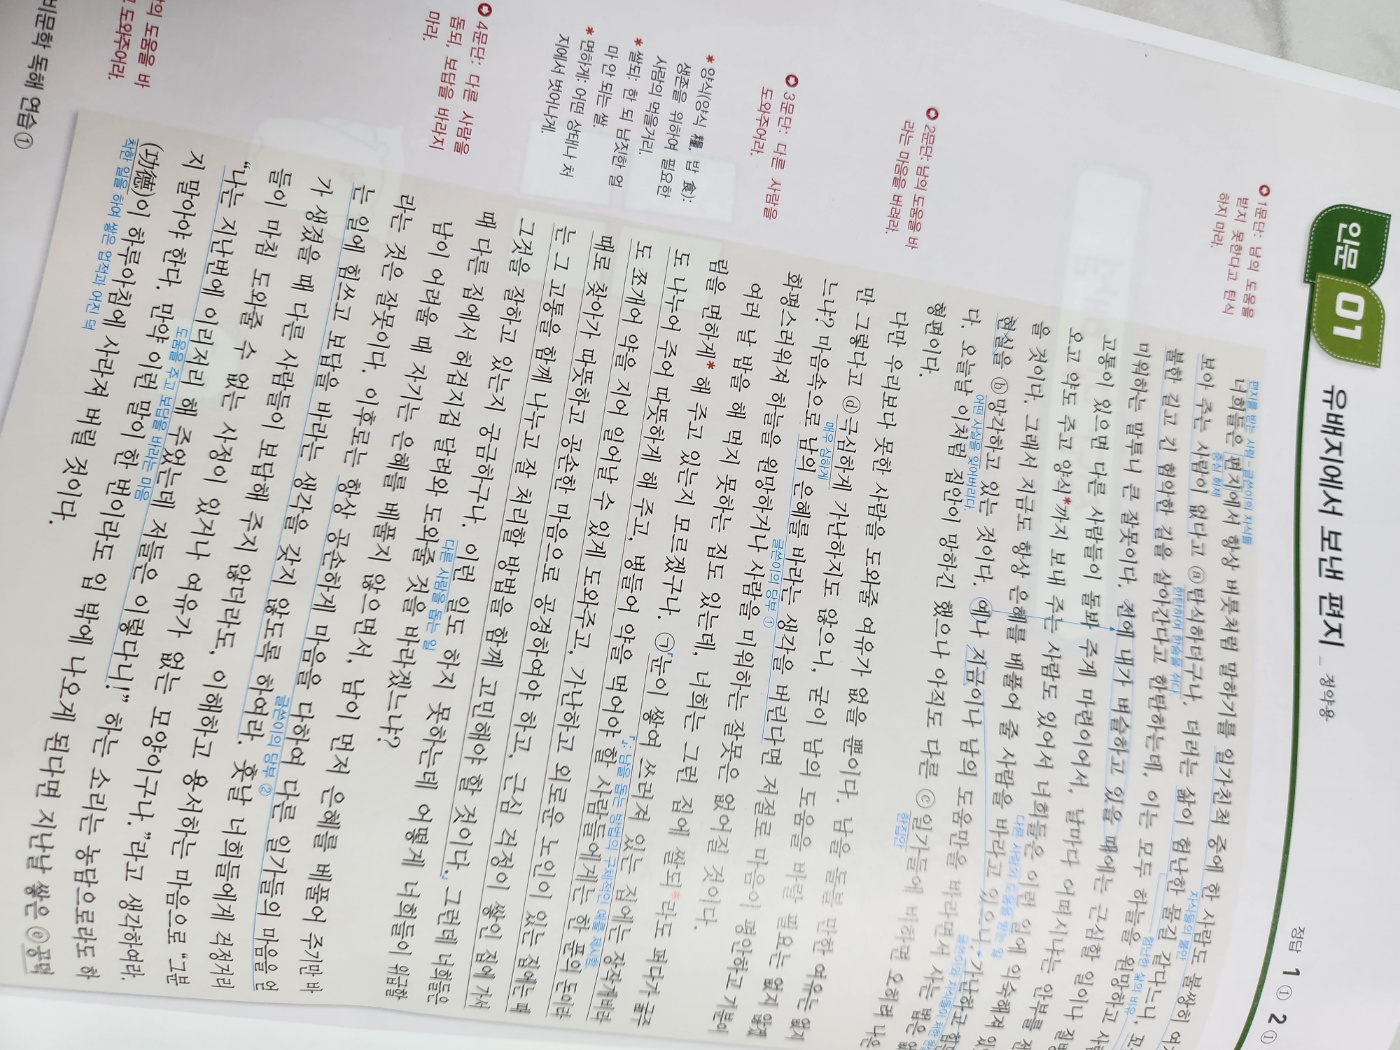 인문 01
유배지에서 보낸 편지 _ 정약용
정답 1 ① 2 ①
✪ 1문단: 남의 도움을
받지 못한다고 탄식
하지 마라.
✪ 2문단: 남의 도움을 바
라는 마음을 버려라.
✪ 3문단: 다른 사람을
도와주어라.
* 양식(양식 糧, 밥 食):
생존을 위하여 필요한
사람의 먹을거리.
* 쌀되: 한 되 남짓한 얼
마 안 되는 쌀.
* 면하게: 어떤 상태나 처
지에서 벗어나게.
✪ 4문단: 다른 사람을
돕되, 보답을 바라지
마라.
의 도움을 바
도와주어라.
비문학 독해 연습 ①
편지를 받는 사람 - 글쓴이의 자식들
너희들은 편지에서 항상 버릇처럼 말하기를 일가친척 중에 한 사람도 불쌍히 여
중심 화제
보아 주는 사람이 없다고 ⓐ탄식하더구나. 더러는 삶이 험난한 물길 같다느니, 꼬
한탄하여 한숨을 쉬다
불한 길고 긴 험악한 길을 살아간다고 한탄하는데, 이는 모두 하늘을 원망하고 사
미워하는 말투니 큰 잘못이다. 전에 내가 벼슬하고 있을 때에는 근심할 일이나 질
고통이 있으면 다른 사람들이 돌봐 주게 마련이어서, 날마다 어떠시냐는 안부를 전
오고 약도 주고 양식*까지 보내 주는 사람도 있어서 너희들은 이런 일에 익숙해져 있
을 것이다. 그래서 지금도 항상 은혜를 베풀어 줄 사람을 바라고 있으니, 가난하고
다른 사람의 도움을 받는 일
현실을 ⓑ망각하고 있는 것이다. 예나 지금이나 남의 도움만을 바라면서 사는 법은 없
어떤 사실을 잊어버리다
다. 오늘날 이처럼 집안이 망하긴 했으나 아직도 다른 ⓒ일가들에 비하면 오히려 나은
한집안
형편이다.
다만 우리보다 못한 사람을 도와줄 여유가 없을 뿐이다. 남을 돌볼 만한 여유는 없지
만 그렇다고 ⓓ극심하게 가난하지도 않으니, 굳이 남의 도움을 바랄 필요는 없지 않겠
매우 심하게
느냐? 마음속으로 남의 은혜를 바라는 생각을 버린다면 저절로 마음이 평안하고 기분이
글쓴이의 당부 ①
화평스러워져 하늘을 원망하거나 사람을 미워하는 잘못은 없어질 것이다.
여러 날 밥을 해 먹지 못하는 집도 있는데, 너희는 그런 집에 쌀되*라도 퍼다가 굶주
림을 면하게* 해 주고 있는지 모르겠구나. ㉠눈이 쌓여 쓰러져 있는 집에는 장작개비라
『 』: 남을 돕는 방법의 구체적인 예를 제시함
도 나누어 주어 따뜻하게 해 주고, 병들어 약을 먹어야 할 사람들에게는 한 푼의 돈이라
도 쪼개어 약을 지어 일어날 수 있게 도와주고, 가난하고 외로운 노인이 있는 집에는 때
때로 찾아가 따뜻하고 공손한 마음으로 공경하여야 하고, 근심 걱정이 쌓인 집에 가서
는 그 고통을 함께 나누고 잘 처리할 방법을 함께 고민해야 할 것이다. 그런데 너희들은
그것을 잘하고 있는지 궁금하구나. 이런 일도 하지 못하는데 어떻게 너희들이 위급할
다른 사람을 돕는 일
때 다른 집에서 허겁지겁 달려와 도와줄 것을 바라겠느냐?
남이 어려울 때 자기는 은혜를 베풀지 않으면서, 남이 먼저 은혜를 베풀어 주기만 바
라는 것은 잘못이다. 이후로는 항상 공손하게 마음을 다하여 다른 일가들의 마음을 얻
는 일에 힘쓰고 보답을 바라는 생각을 갖지 않도록 하여라. 훗날 너희들에게 걱정거리
글쓴이의 당부 ②
가 생겼을 때 다른 사람들이 보답해 주지 않더라도, 이해하고 용서하는 마음으로 “그분
들이 마침 도와줄 수 없는 사정이 있거나 여유가 없는 모양이구나.”라고 생각하여라.
“나는 지난번에 이리저리 해 주었는데 저들은 이렇다니!” 하는 소리는 농담으로라도 하
도움을 주고 보답을 바라는 마음
지 말아야 한다. 만약 이런 말이 한 번이라도 입 밖에 나오게 된다면 지난날 쌓은 ⓔ공덕
(功德)이 하루아침에 사라져 버릴 것이다.
착한 일을 하여 쌓은 업적과 어진 덕